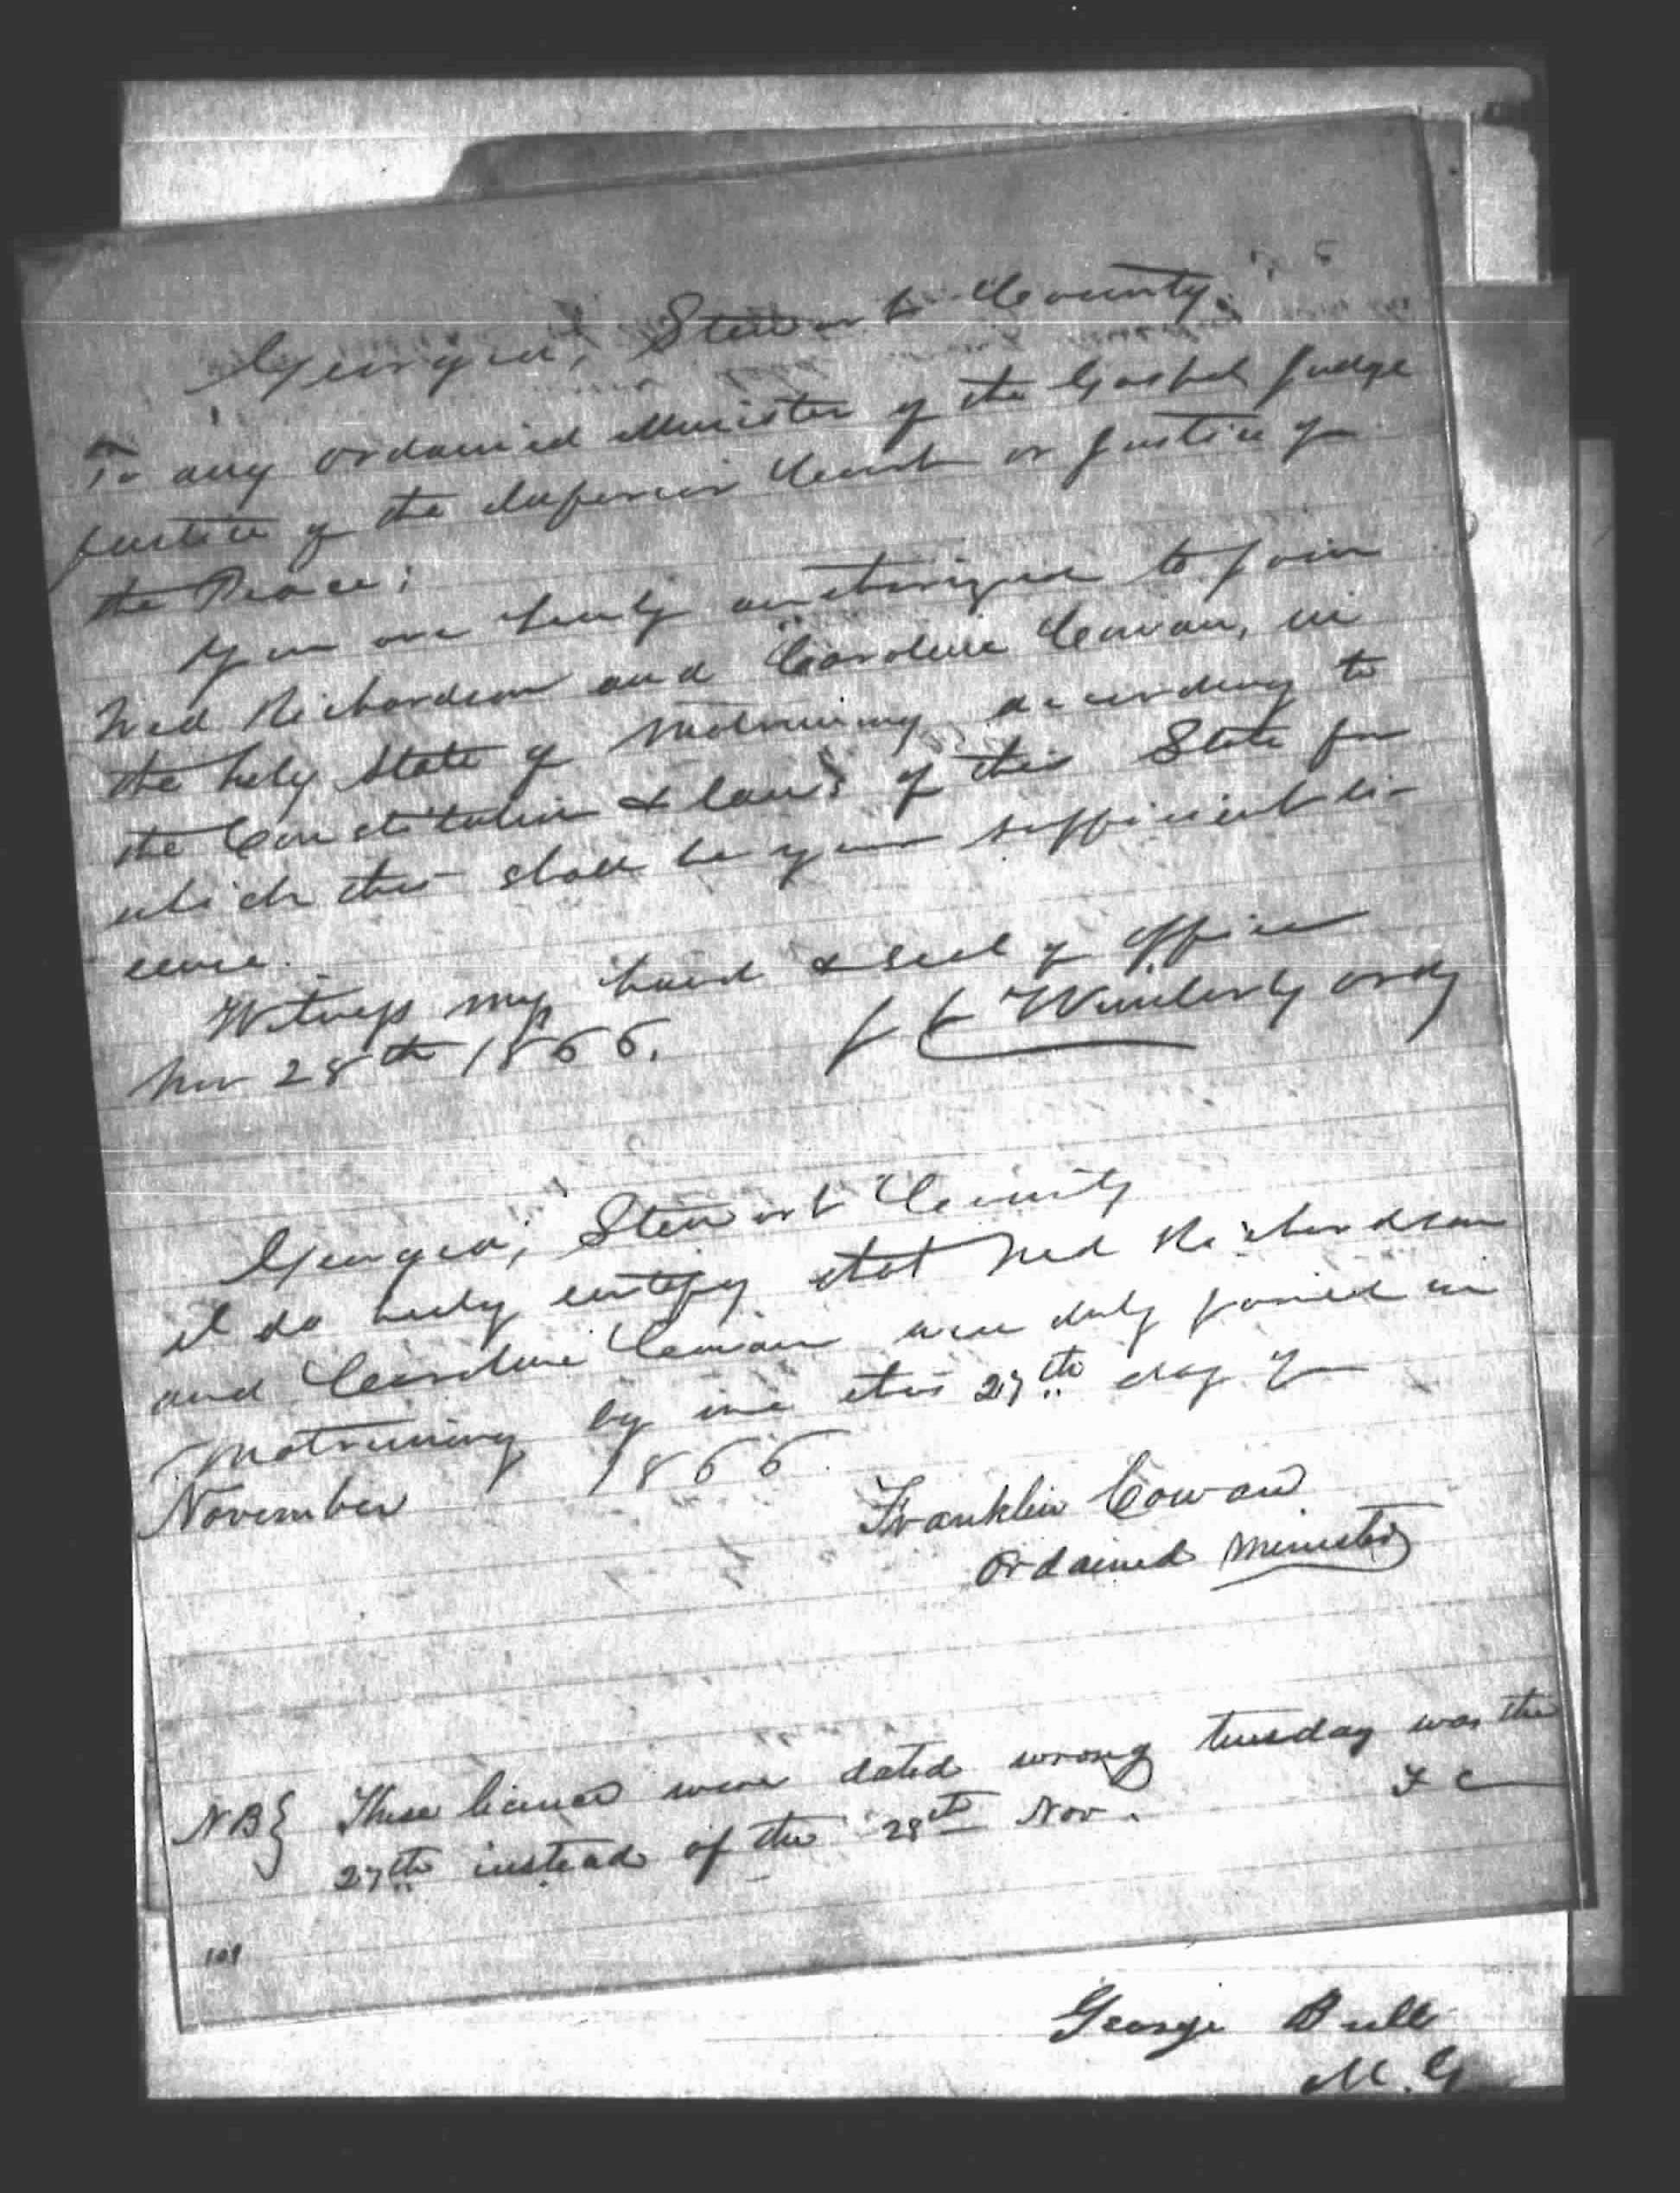 Georgia, Stewart County.
To any ordained Minister of the Gospel Judge
Justice of the Inferior Court or Justice of
the Peace:
You are hereby authorized to join
Ned Richardson and Caroline Cowan, in
the holy State of Matrimony according to
the Constitution & laws of this State for
which this shall be your sufficient li-
cence.
Witness my hand & seal of office
Nov 28th 1866. J C Wimberly Ordy
Georgia, Stewart County
I do hereby certify that Ned Richardson
and Caroline Cowan were duly joined in
Matrimony by me this 27th day of
November 1866.
Franklin Cowan
Ordained Minister
NB} These licence were dated wrong tuesday was the
27th instead of the 28th Nov. F C
109
George Bull
M.G